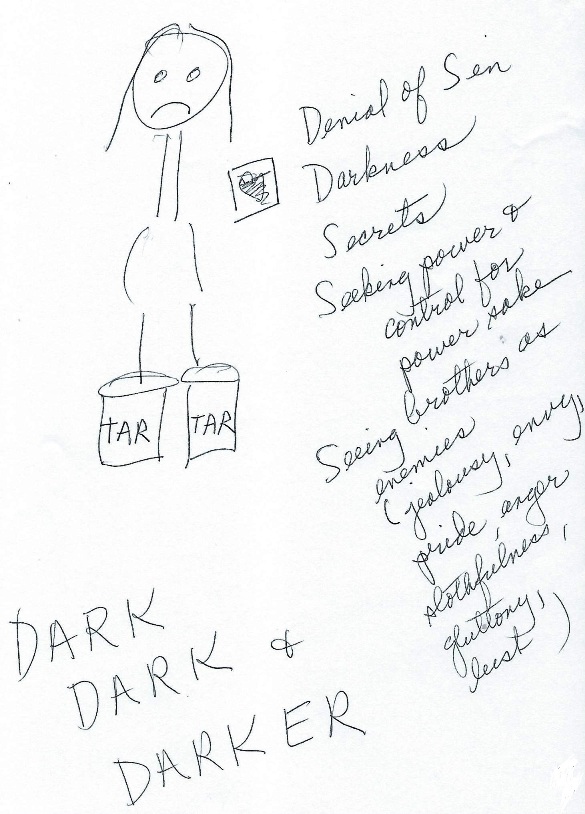 Denial of Sen
Darkness
Secrets
Seeking power &
control for
power sake
Seeing brothers as
enemies
(jealousy, envy,
pride, anger
slothfulness,
gluttony,
lust)
TAR TAR
DARK
DARK &
DARKER